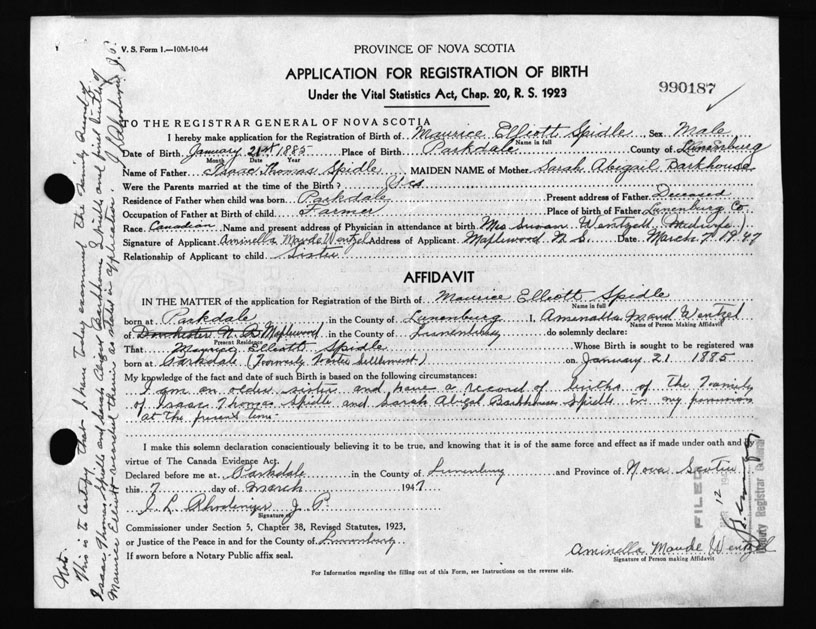 V. S. Form 1.—10M-10-44
PROVINCE OF NOVA SCOTIA
APPLICATION FOR REGISTRATION OF BIRTH
Under the Vital Statistics Act, Chap. 20, R. S. 1923
990187
TO THE REGISTRAR GENERAL OF NOVA SCOTIA
I hereby make application for the Registration of Birth of Maurice Elliott Spidle Sex Male
Name in full
Date of Birth January 21st 1885 Place of Birth Parkdale County of Lunenburg
Month Date Year
Name of Father Isaac Thomas Spidle MAIDEN NAME of Mother Sarah Abigail Barkhouse
Were the Parents married at the time of the Birth? Yes
Residence of Father when child was born Parkdale Present address of Father Deceased
Occupation of Father at Birth of child Farmer Place of birth of Father Lunenburg Co
Race Canadian Name and present address of Physician in attendance at birth Mrs Susan Wentzell Midwife
Signature of Applicant Aminella Maude Wentzel Address of Applicant Maplewood N. S. Date March 7 1947
Relationship of Applicant to child Sister
AFFIDAVIT
IN THE MATTER of the application for Registration of the Birth of Maurice Elliott Spidle
Name in full
born at Parkdale in the County of Lunenburg I, Aminella Maud Wentzel
Name of Person Making Affidavit
of Maplewood in the County of Lunenburg do solemnly declare:
Present Residence
That Maurice Elliott Spidle Whose Birth is sought to be registered was
born at Parkdale (Formerly Settlement) on January 21 1885
My knowledge of the fact and date of such Birth is based on the following circumstances:
I am an older sister and have a record of births of the Family
of Isaac Thomas Spidle and Sarah Abigal Barkhouse Spidle in my possession
at the present time
I make this solemn declaration conscientiously believing it to be true, and knowing that it is of the same force and effect as if made under oath and by
virtue of The Canada Evidence Act.
Declared before me at Parkdale in the County of Lunenburg and Province of Nova Scotia
this 7 day of March 1947
J. L. Rhodenizer J. P.
Signature of
Commissioner under Section 5, Chapter 38, Revised Statutes, 1923,
or Justice of the Peace in and for the County of Lunenburg
If sworn before a Notary Public affix seal.
Aminella Maude Wentzel
Signature of Person making Affidavit
For Information regarding the filling out of this Form, see Instructions on the reverse side.
FILED
12
Deputy Registrar General
This is to Certify that I have today examined the Family Record of
Isaac Thomas Spidle and Sarah Abigal Barkhouse Spidle and find Births of
Maurice Elliott recorded therein as stated in application J L Rhodenizer J. P.